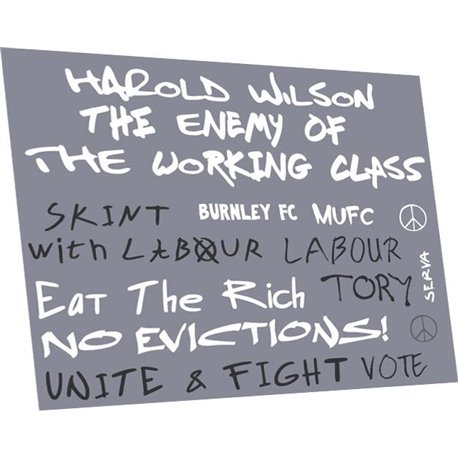 HAROLD WILSON
THE ENEMY OF
THE WORKING CLASS
SKINT BURNLEY FC MUFC
with LABOUR LABOUR
TORY
SERVA
Eat The Rich
NO EVICTIONS!
UNITE & FIGHT VOTE